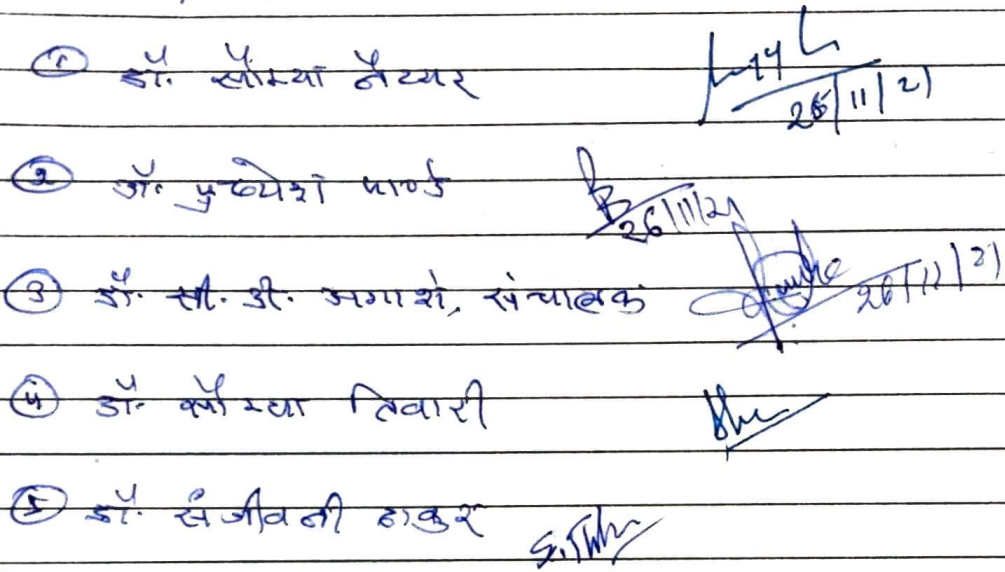 ① डॉ. सौम्या नैय्यर 26/11/21
② डॉ. पुण्येश पाण्डे 26/11/21
③ डॉ. सी. डी. अगाशे, संचालक 26/11/21
④ डॉ. सौम्या तिवारी
⑤ डॉ. संजीवनी ठाकुर